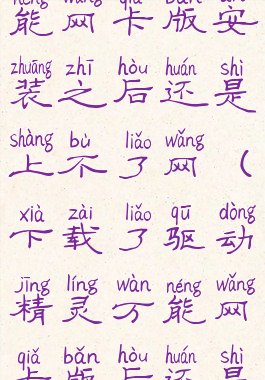 néng wǎng kǎ bǎn ān
能网卡版安
zhuāng zhī hòu huán shì
装之后还是
shàng bù liǎo wǎng
上不了网（
xià zài liǎo qū dòng
下载了驱动
jīng líng wàn néng wǎng
精灵万能网
qiǎ bǎn hòu huán shì
卡版后还是